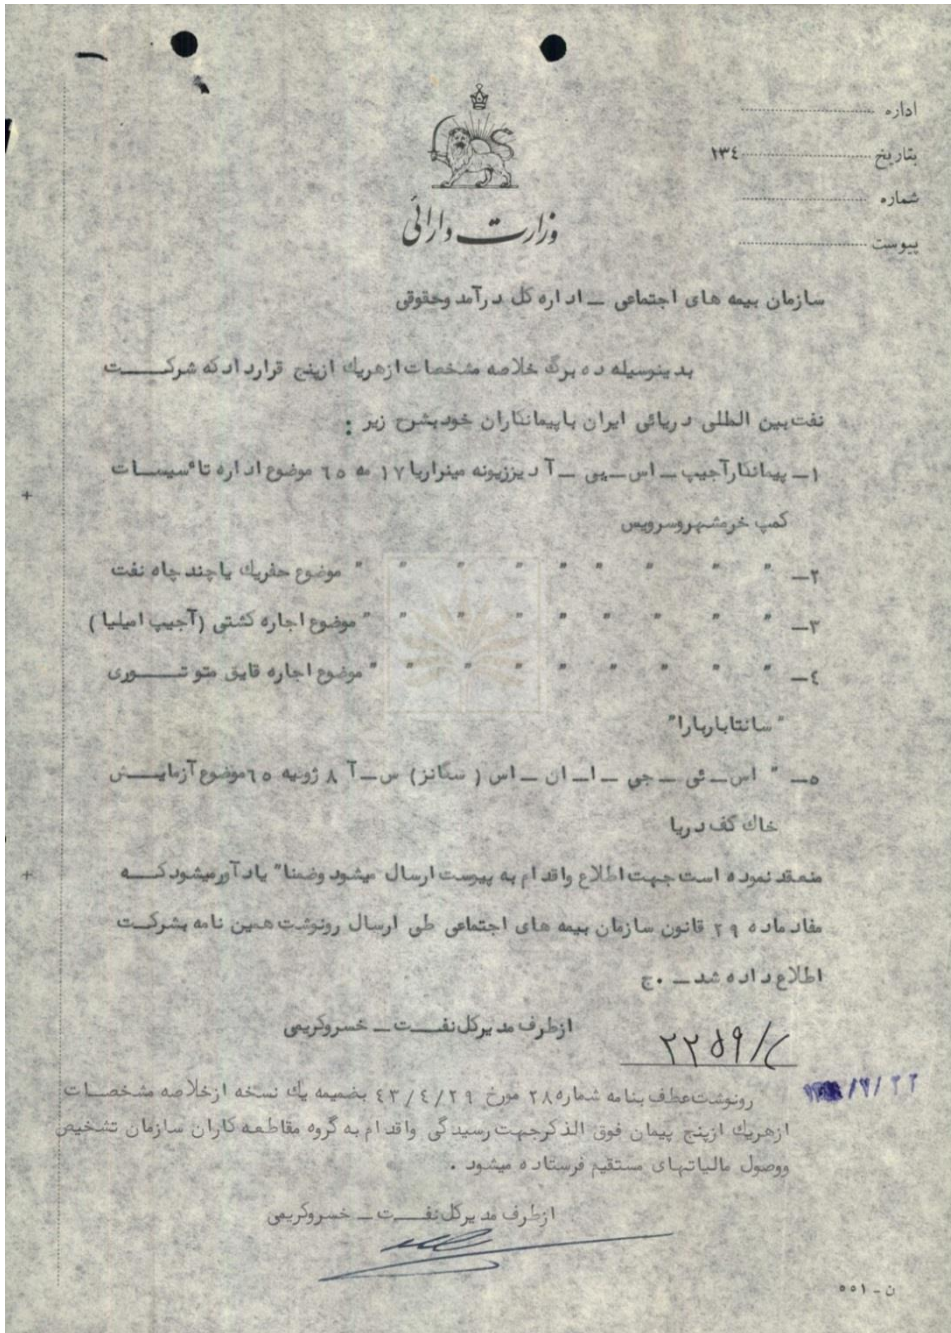 اداره
بتاریخ ۱۳٤
شماره
پیوست
وزارت دارائی
سازمان بیمه های اجتماعی ـ اداره کل درآمد وحقوقی
بدینوسیله ده برگ خلاصه مشخصات ازهریك ازپنج قرارداد که شرکت
نفت بین المللی دریائی ایران با پیمانکاران خود بشرح زیر :
۱ـ پیمانکار آجیپ ـ اس ـ پی ـ آ دیزیونه مینراریا ۱۷ مه ٦٥ موضوع اداره تاٴسیسات
کمپ خرمشهر وسرویس
۲ـ " " " " " " " " " موضوع حفریك یا چند چاه نفت
۳ـ " " " " " " " " " موضوع اجاره کشتی (آجیپ امیلیا)
٤ـ " " " " " " " " " موضوع اجاره قایق متوتوری
"سانتاباربارا"
٥ـ " اس ـ ئی ـ جی ـ ا ـ ان ـ اس (سگانز) س ـ آ ۸ ژویه ٦٥ موضوع آزمایش
خاك کف دریا
منعقد نموده است جهت اطلاع واقدام به پیوست ارسال میشود وضمنا" یادآور میشود که
مفاد ماده ۲۹ قانون سازمان بیمه های اجتماعی طی ارسال رونوشت همین نامه بشرکت
اطلاع داده شد ـ ۰ج
ازطرف مدیرکل نفت ـ خسروکریمی
۲۲۵۹/
رونوشت عطف بنامه شماره ۲۸ مورخ ٤۳/٤/۲۹ بضمیمه یك نسخه ازخلاصه مشخصات
ازهریك ازپنج پیمان فوق الذکر جهت رسیدگی واقدام به گروه مقاطعه کاران سازمان تشخیص
ووصول مالیاتهای مستقیم فرستاده میشود .
ازطرف مدیرکل نفت ـ خسروکریمی
ن - ٥٥۱